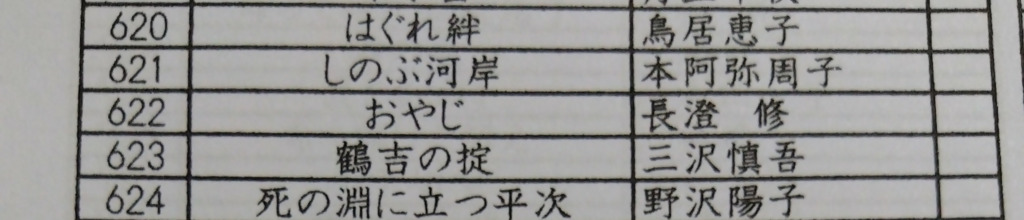 620 はぐれ絆 鳥居恵子
621 しのぶ河岸 本阿弥周子
622 おやじ 長澄 修
623 鶴吉の掟 三沢慎吾
624 死の淵に立つ平次 野沢陽子